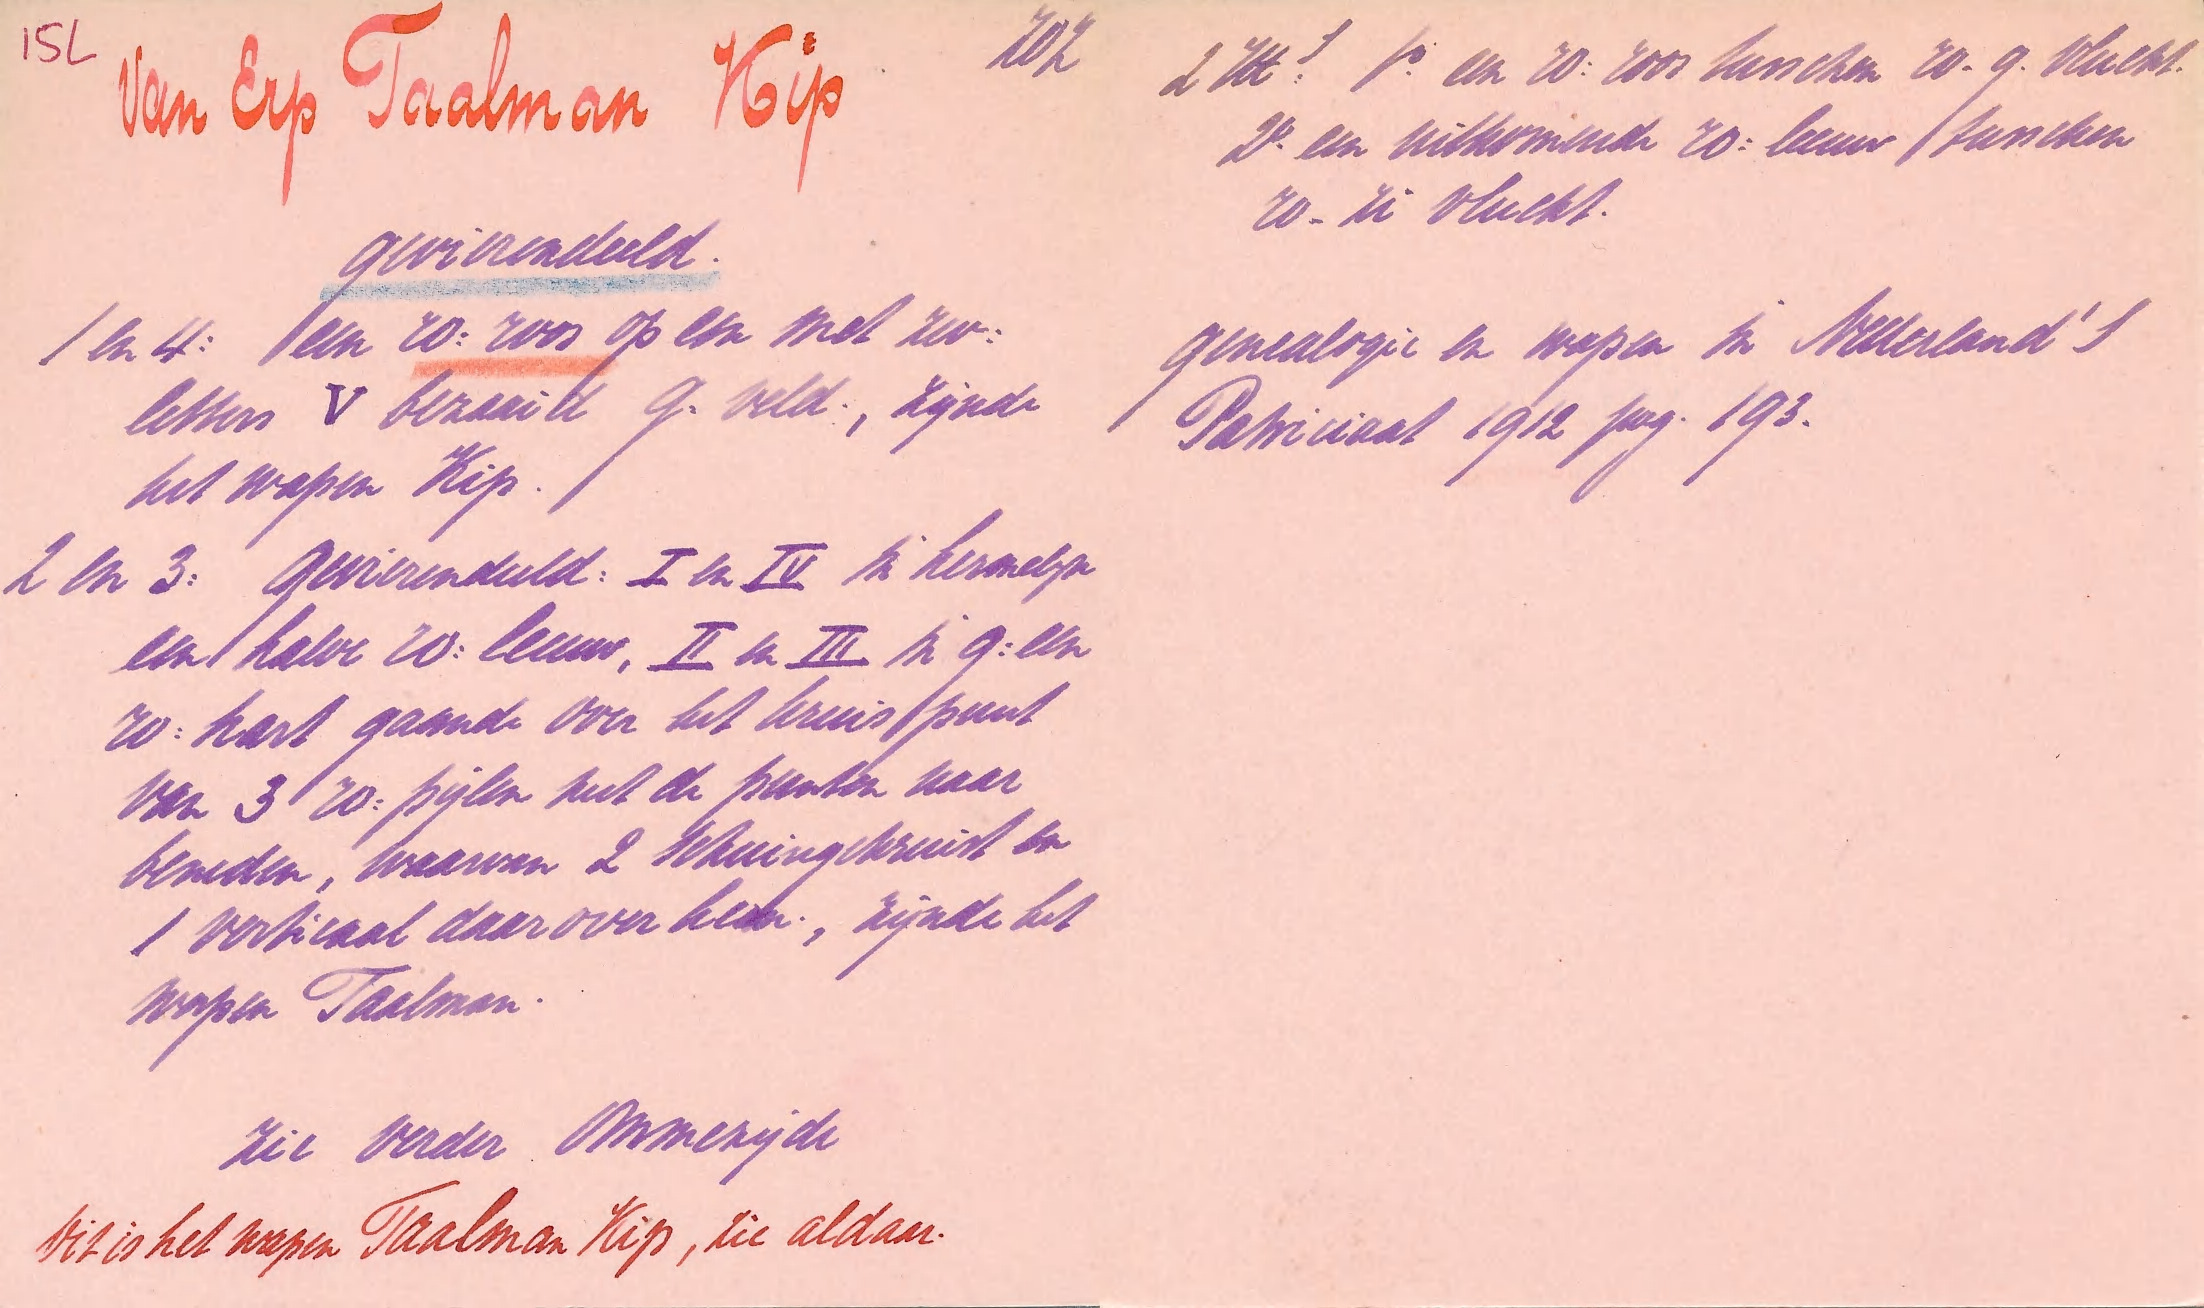 15L
Van Erp Taalman Kip
gevierendeeld.
1 en 4: een ro: roos op een met zw:
letters V bezaaid g. veld., zijnde
het wapen Kip.
2 en 3: Gevierendeeld: I en IV in hermelijn
een halve ro: leeuw, II en III in g: een
ro: hart gaande over het kruispunt
van 3 ro: pijlen met de punten naar
beneden, waarvan 2 schuingekruist en
1 verticaal daarover heen., zijnde het
wapen Taalman.
zie verder Ommezijde
Dit is het wapen Taalman Kip, zie aldaar.
2 Ht! 1º. een ro: roos tusschen ro- g. vlucht.
2º. een uitkomende ro: leeuw tusschen
ro- zi vlucht.
genealogie en wapen in Nederland's
Patriciaat 1912 pag. 193.